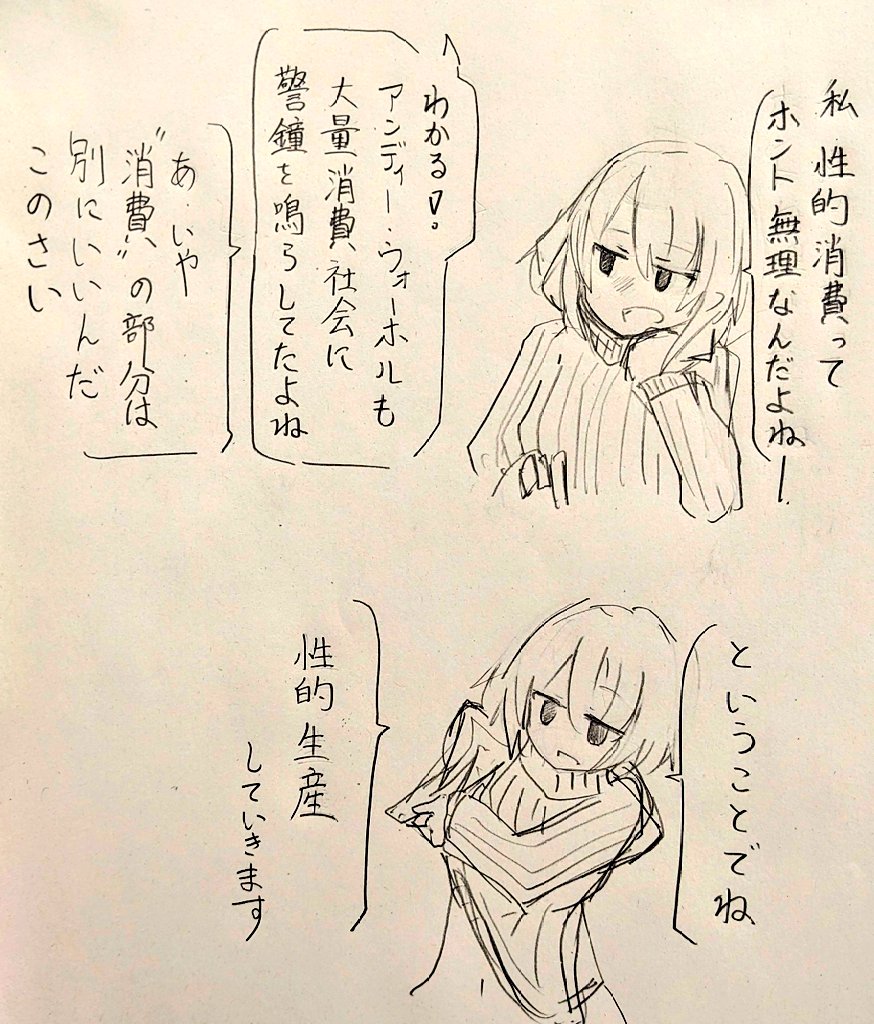 私 性的消費って
ホント無理なんだよねー
わかる〜。
アンディー・ウォーホルも
大量消費社会に
警鐘を鳴らしてたよね
あ、いやー
“消費”の部分は
別にいいんだ
このさい
ということでね
性的生産
していきます